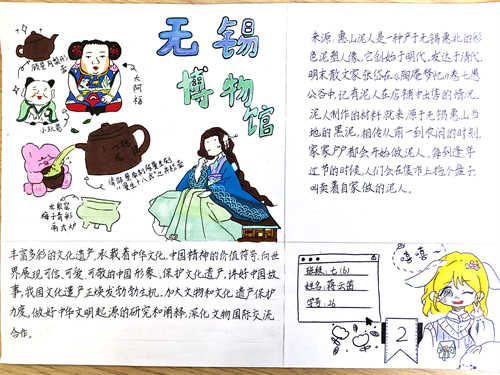 无锡
博物馆
大阿福
丰富多彩的文化遗产,承载着中华文化、中国精神的价值符号,向世
界展现可信、可爱、可敬的中国形象。保护文化遗产,讲好中国故
事,我国文化遗产正焕发勃勃生机。加大文物和文化遗产保护
力度,做好中华文明起源的研究和阐释,深化文物国际交流
合作。
来源:惠山泥人是一种产于无锡惠北的彩
色泥塑人像。它创始于明代,发达于清代。
明末散文家张岱在《陶庵梦忆》卷七愚
公谷中,记有泥人在店铺中出售的情况。
泥人制作的材料就来源于无锡惠山当
地的黑泥,相传从前一到农闲的时刻,
家家户户都会开始做泥人。每到逢年
过节的时候,人们会在集市上抱个盘子
叫卖着自家做的泥人。
班级:七(6)
姓名:蒋云茜
学号:26
2
嘻嘻~